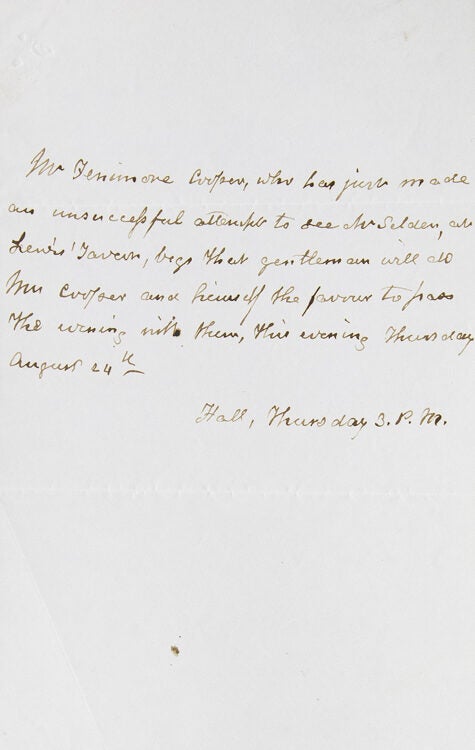 Mr Fenimore Cooper, who has just made
an unsuccessful attempt to see Mr Selden, at
Lewis' Tavern, begs that gentleman will do
Mrs Cooper and himself the favour to pass
the evening with them, this evening Thursday
August 24th
Hall, Thursday 3. P. M.